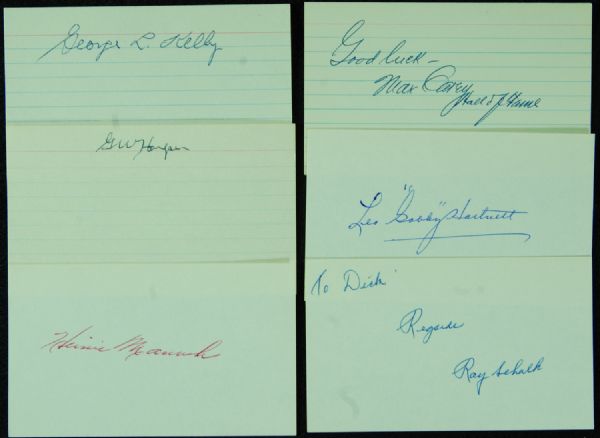 George L. Kelly
Good luck -
Max Carey
Hall of Fame
Leo "Gabby" Hartnett
Heinie Manush
To Dick
Regards
Ray Schalk